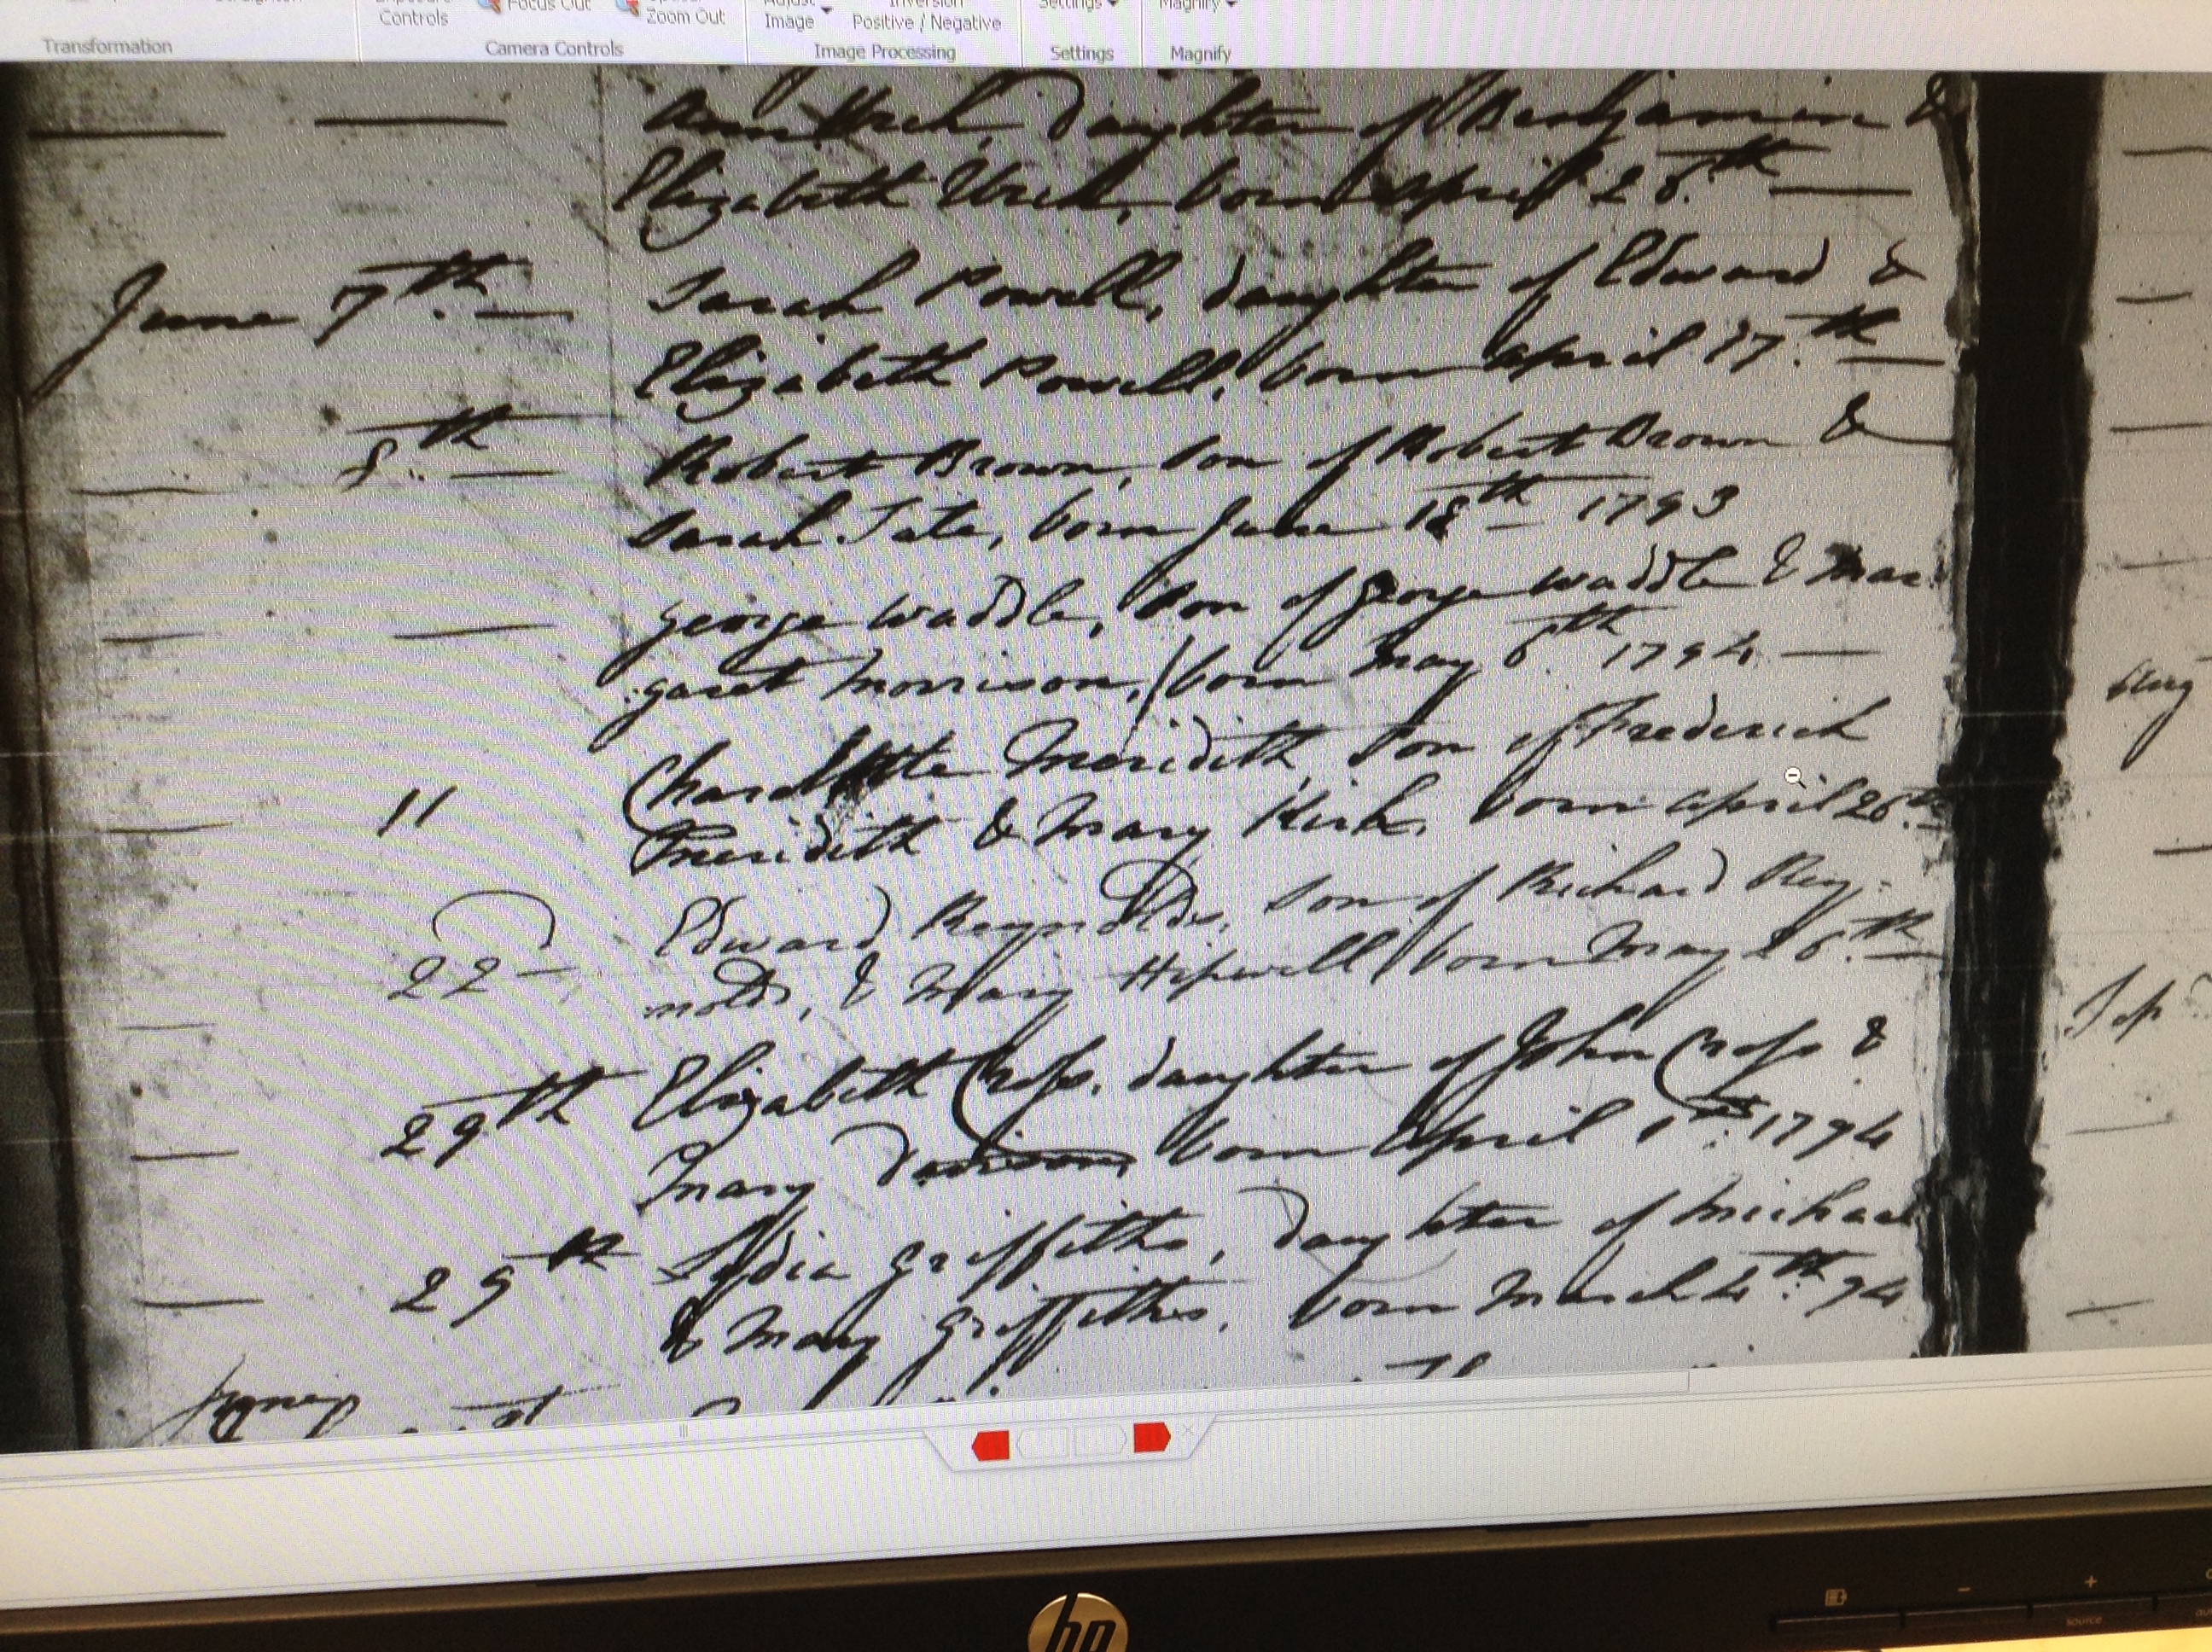 Controls
Focus Out
Zoom Out
Image
Inversion
Positive / Negative
Settings
Magnify
Transformation
Camera Controls
Image Processing
Settings
Magnify
Ann Urch, Daughter of Benjamin &
Elizabeth Urch, born April 28th
June 7th. Sarah Powell, daughter of Edward &
Elizabeth Powell, born April 17th
8th Robert Brown, Son of Robert Brown &
Sarah Tate, born June 18th 1793
George Waddle, Son of George Waddle & Mar
garet Morrison, born May 6th 1794
11 Charlotte Meridith, Son of Frederick
Meridith & Mary Kirk, born April 26th
22 Edward Reynolds, Son of Richard Rey-
nolds, & Mary Hipwell born May 26th
29th Elizabeth Cross, daughter of John Cross &
Mary Davison born April 1st 1794
29th Lydia Griffiths, Daughter of Michael
& Mary Griffiths, born March 4th 94
Aug
Sep
hp
source